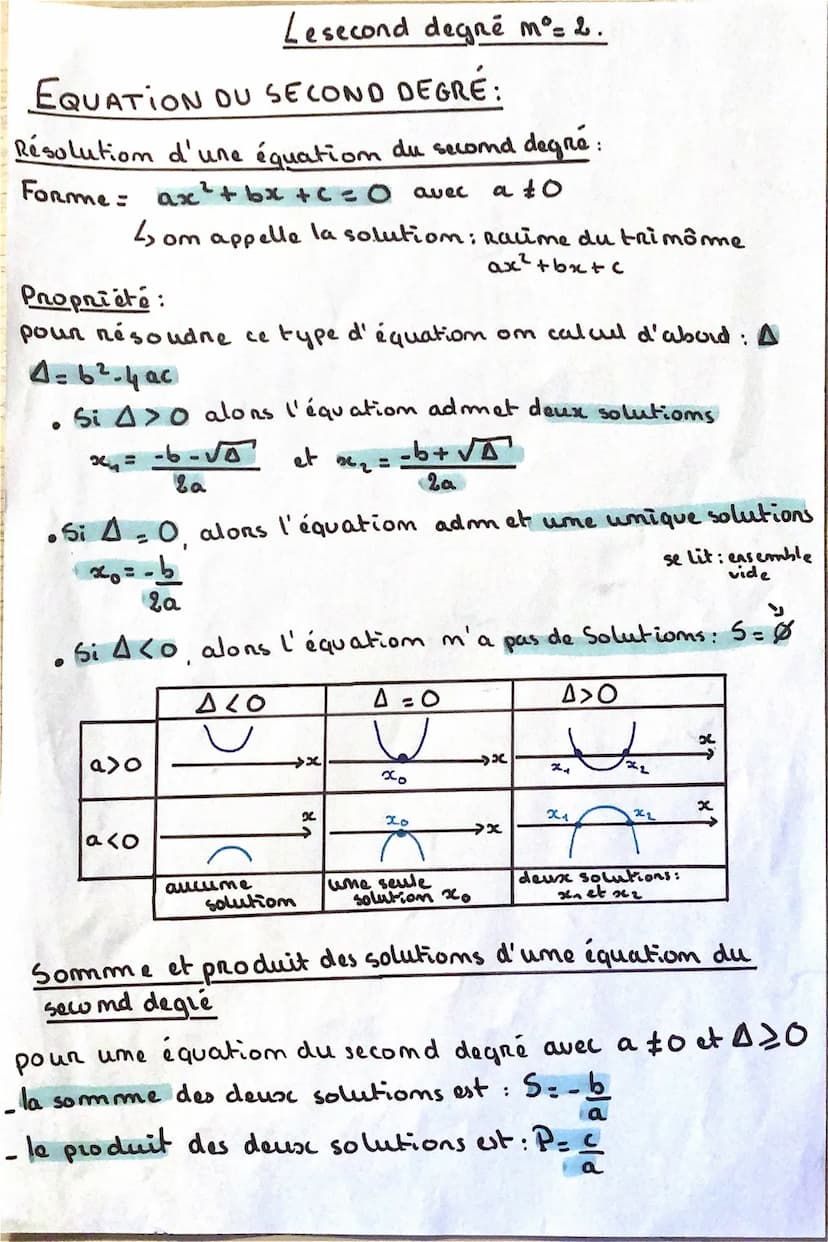 Le second degré n°= 2.
EQUATION DU SECOND DEGRÉ:
Résolution d'une équation du second degré:
Forme = ax² + bx + c = 0 avec a ≠ 0
↳ on appelle la solution: racine du trinôme
ax² + bx + c
Propriété:
pour résoudre ce type d'équation on calcul d'abord: Δ
Δ = b² - 4ac
• Si Δ > 0 alors l'équation admet deux solutions
x₁ = (-b - √Δ)/2a et x₂ = (-b + √Δ)/2a
• Si Δ = 0, alors l'équation admet une unique solutions
x₀ = -b/2a
se lit: ensemble
vide
• Si Δ < 0, alors l'équation n'a pas de Solutions: S = ∅
Δ < 0 Δ = 0 Δ > 0
a > 0 x x₀ x x₁ x₂ x
a < 0 x x₀ x x₁ x₂ x
aucune solution une seule solution x₀ deux solutions: x₁ et x₂
Somme et produit des solutions d'une équation du
second degré
pour une équation du second degré avec a ≠ 0 et Δ ≥ 0
- la somme des deux solutions est: S = -b/a
- le produit des deux solutions est: P = c/a